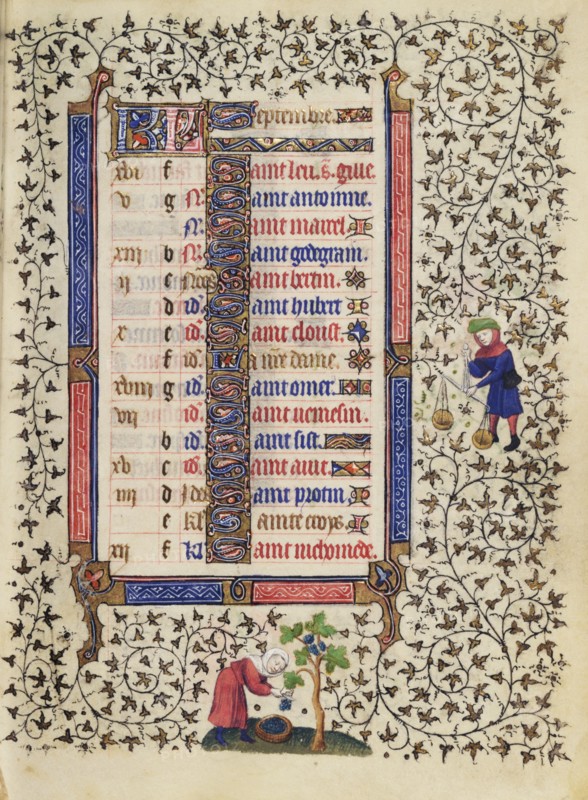 KL Septembre.
xvi f Saint leu. s. gille.
v g N. Saint antoinne.
N. Saint marcel
xiii b N. Saint godegram.
ii c Nões Saint bertin.
d id. Saint hubert
x e id. Saint cloust.
f id. La nre dame.
xviii g id. Saint omer.
vii id. Saint nemesin.
b id. Saint sist.
xv c id. Saint aut.
iiii d Idus Saint protin.
e kl Sainte croys.
xii f kl. Saint nichomede.